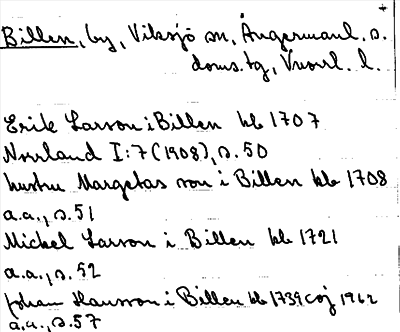 Billen, by, Viksjö sn, Ångermanl. s.
doms.tg, Vnorrl. l.
Erik Larson i Billen kb 1707
Norrland I:7 (1908), s. 50
hustru Margetas son i Billen kb 1708
a.a., s. 51
Mickel Larson i Billen kb 1721
a.a., s. 52
Johan Hansson i Billen kb 1739
a.a., s. 57